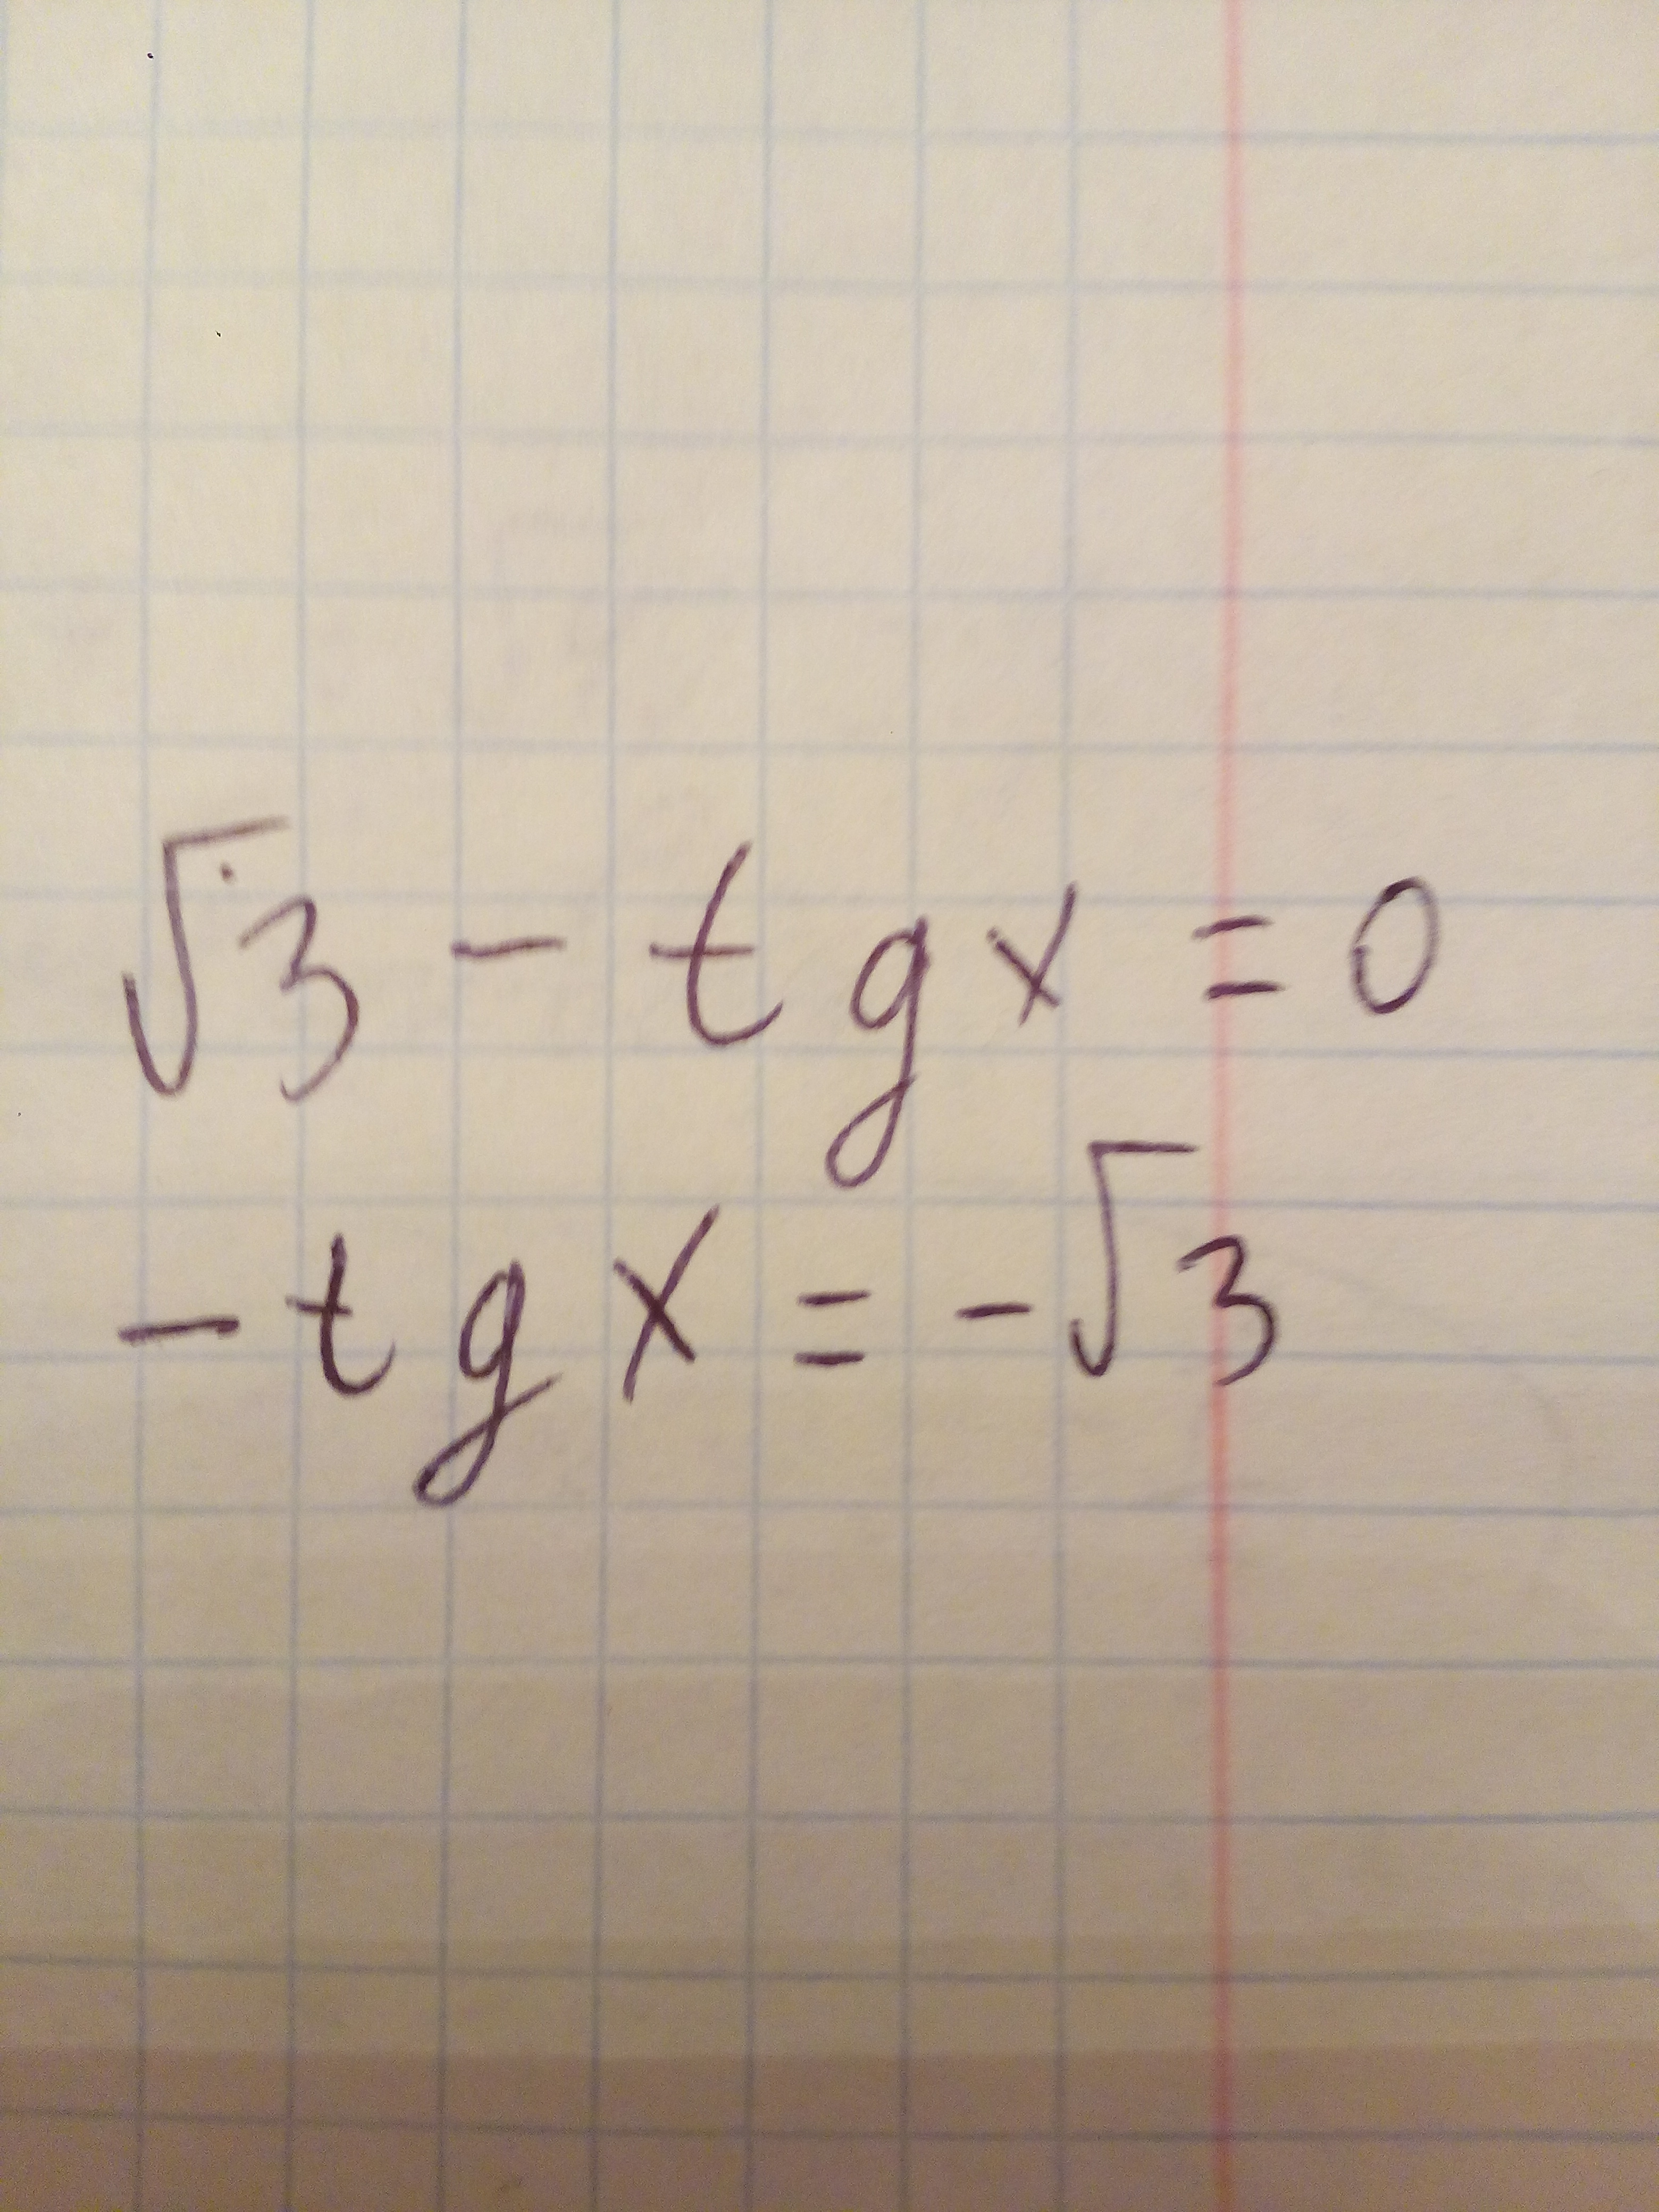 √3 - tg x = 0
- tg x = - √3